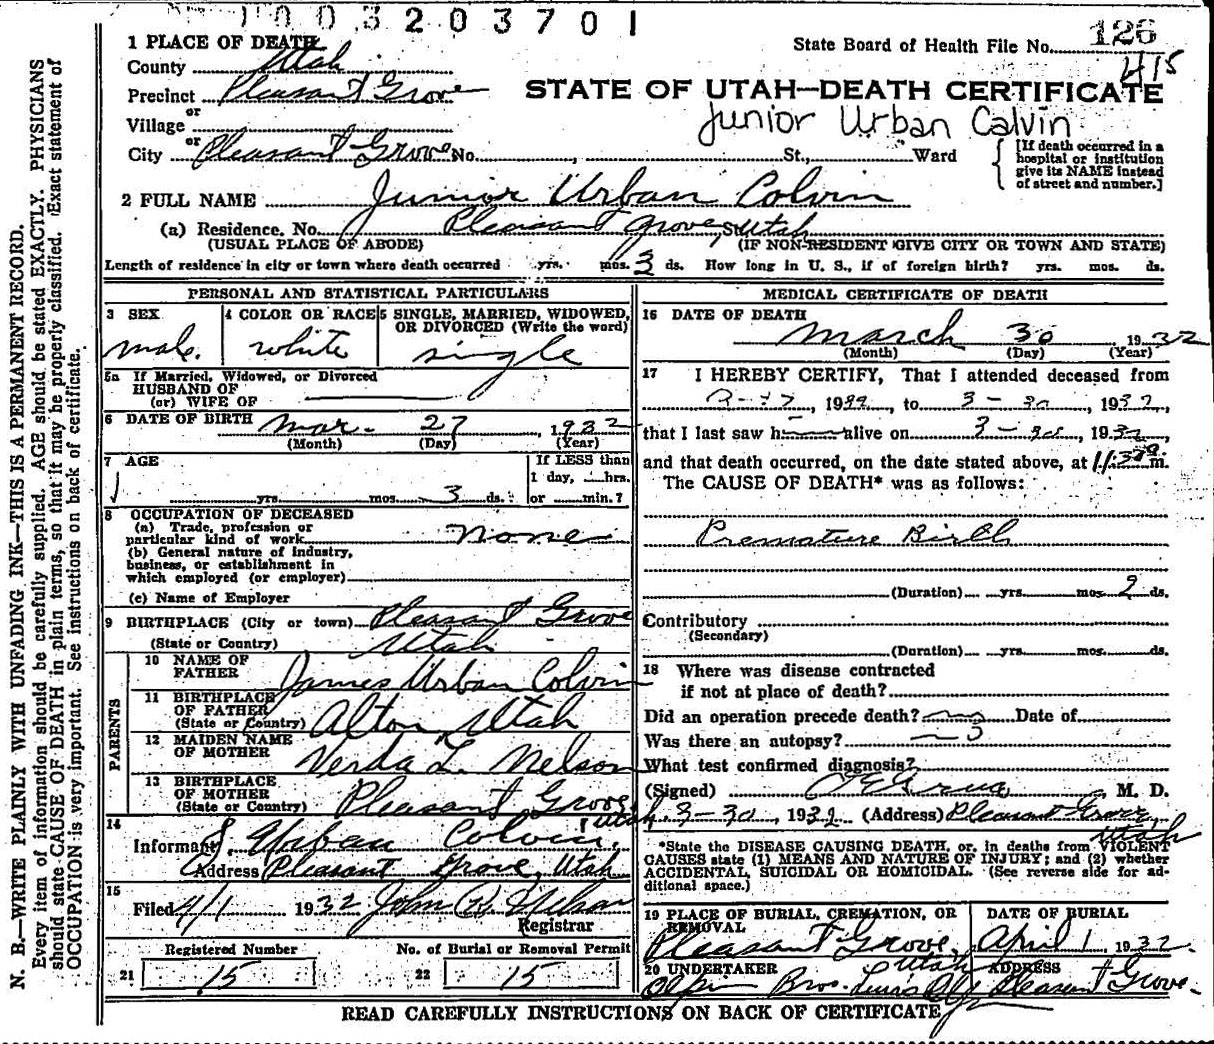 1003203701
State Board of Health File No. 126
415
1 PLACE OF DEATH
County Utah
Precinct Pleasant Grove
or
Village
or
City Pleasant Grove No. , St., Ward
STATE OF UTAH—DEATH CERTIFICATE
Junior Urban Calvin
[If death occurred in a
hospital or institution
give its NAME instead
of street and number.]
2 FULL NAME Junior Urban Colvin
(a) Residence. No. Pleasant Grove, St. Utah
(USUAL PLACE OF ABODE) (IF NON-RESIDENT GIVE CITY OR TOWN AND STATE)
Length of residence in city or town where death occurred yrs. mos. 3 ds. How long in U. S., if of foreign birth? yrs. mos. ds.
PERSONAL AND STATISTICAL PARTICULARS
3 SEX 4 COLOR OR RACE 5 SINGLE, MARRIED, WIDOWED,
OR DIVORCED (Write the word)
male. white single
5a If Married, Widowed, or Divorced
HUSBAND OF
(or) WIFE OF
6 DATE OF BIRTH Mar. 27 1932
(Month) (Day) (Year)
7 AGE If LESS than
1 day, hrs.
yrs. mos. 3 ds. or min.?
8 OCCUPATION OF DECEASED
(a) Trade, profession or
particular kind of work none
(b) General nature of industry,
business, or establishment in
which employed (or employer)
(c) Name of Employer
9 BIRTHPLACE (City or town) Pleasant Grove
(State or Country) Utah
PARENTS
10 NAME OF
FATHER James Urban Colvin
11 BIRTHPLACE
OF FATHER
(State or Country) Alton, Utah
12 MAIDEN NAME
OF MOTHER Verda L. Nelson
13 BIRTHPLACE
OF MOTHER
(State or Country) Pleasant Grove, Utah.
14
Informant J. Urban Colvin,
Address Pleasant Grove, Utah
15
Filed 4/1 1932 John
Registrar
Registered Number No. of Burial or Removal Permit
21 15 22 15
MEDICAL CERTIFICATE OF DEATH
16 DATE OF DEATH
March 30 1932
(Month) (Day) (Year)
17 I HEREBY CERTIFY, That I attended deceased from
, 19 , to 3-30, 1932,
that I last saw h alive on 3-30, 1932
and that death occurred, on the date stated above, at m.
The CAUSE OF DEATH* was as follows:
Premature Birth
(Duration) yrs. mos. ds.
Contributory
(Secondary)
(Duration) yrs. mos. ds.
18 Where was disease contracted
if not at place of death?
Did an operation precede death? no Date of
Was there an autopsy? no
What test confirmed diagnosis?
(Signed) M. D.
3-30, 1932 (Address) Pleasant Grove,
Utah
*State the DISEASE CAUSING DEATH, or, in deaths from VIOLENT
CAUSES state (1) MEANS AND NATURE OF INJURY; and (2) whether
ACCIDENTAL, SUICIDAL OR HOMICIDAL. (See reverse side for ad-
ditional space.)
19 PLACE OF BURIAL, CREMATION, OR DATE OF BURIAL
REMOVAL
Pleasant Grove, Utah April 1, 1932.
20 UNDERTAKER ADDRESS
Bros. Pleasant Grove.
READ CAREFULLY INSTRUCTIONS ON BACK OF CERTIFICATE
N. B.—WRITE PLAINLY WITH UNFADING INK—THIS IS A PERMANENT RECORD.
Every item of information should be carefully supplied. AGE should be stated EXACTLY. PHYSICIANS
should state CAUSE OF DEATH in plain terms, so that it may be properly classified. Exact statement of
OCCUPATION is very important. See instructions on back of certificate.